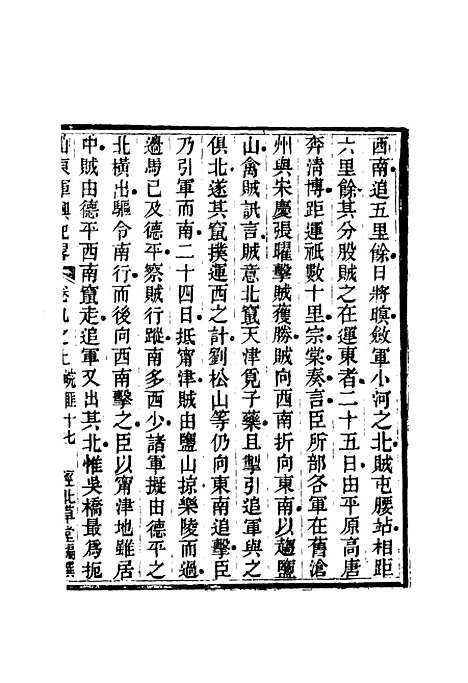 西南追五里餘日將暝斂軍小河之北賊屯腰站相距
六里餘其分股賊之在運東者二十五日由平原高唐
奔清博距運祇數十里宗棠奏言臣所部各軍在舊滄
州與宋慶張曜擊賊獲勝賊向西南折向東南以趨鹽
山禽賊訊言賊意北竄天津覓子藥且掣引追軍與之
俱北遂其竄撲運西之計劉松山等仍向東南追擊臣
乃引軍而南二十四日抵甯津賊由鹽山掠樂陵而過
邊馬已及德平察賊行蹤南多西少諸軍擬由德平之
北橫出驅令南行而後向西南擊之臣以甯津地雖居
中賊由德平西南竄走追軍又出其北惟吳橋最爲扼
山東軍興紀略 卷九之上 捻匪十七 經北草堂編撰